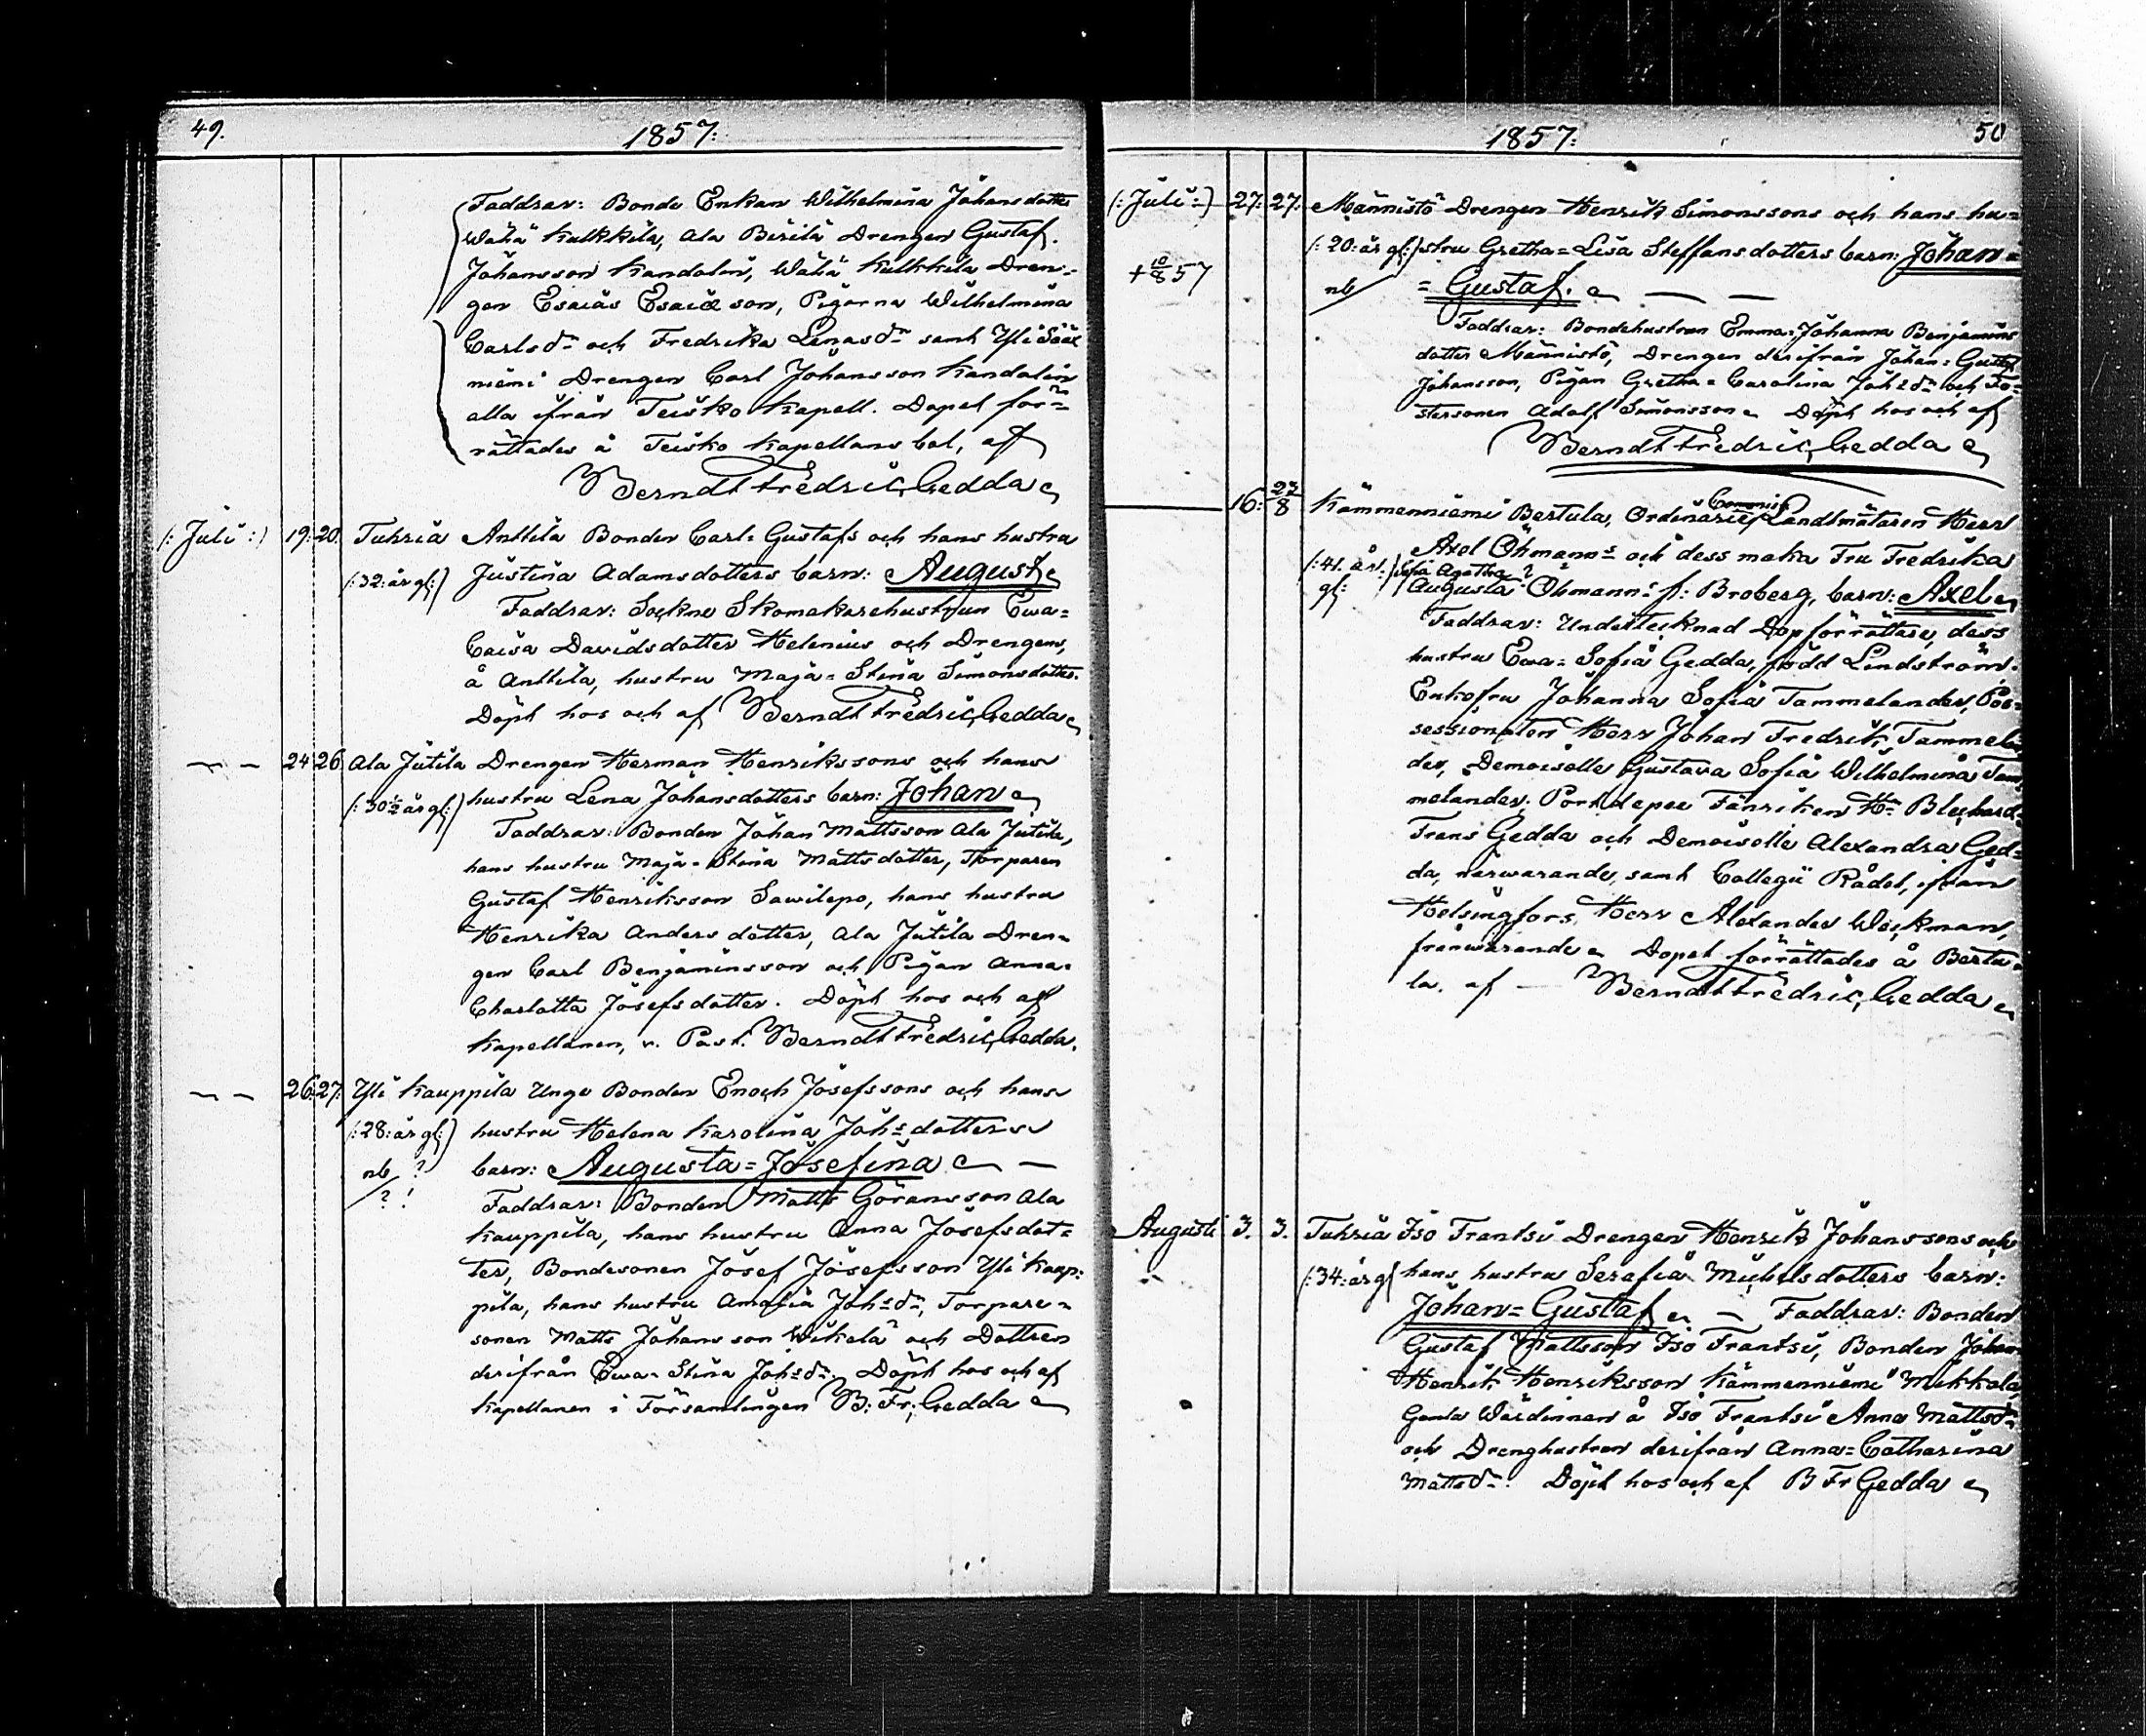 49.
1857:
Faddrar: Bonde Enkan Wilhelmina Johansdotter
Wähä Kulkkila, Ala Birilä Drengen Gustaf
Johansson Kandolin, Wähä Kulkkila Dren-
gen Esaias Esaiæson, Pigorna Wilhelmina
Carlsdr och Fredrika Lenasdr samt Yli Sääx
niemi Drengen Carl Johansson Kandolin
alla ifrån Teisko Kapell. Dopet för-
rättades å Teisko Kapellans bol, af
Berndt Fredric Gedda
(: Juli :) 19. 20. Tuhria Anttila Bonden Carl-Gustafs och hans hustru
(: 32: år gl :) Justina Adamsdotters barn: August
Faddrar: Sockne Skomakarehustrun Ewa-
Caisa Davidsdotter Helenius och Drengens,
å Anttila, hustru Maja-Stina Simonsdotter.
Döpt hos och af Berndt Fredric Gedda
— — 24 26. Ala Jutila Drengen Herman Henrikssons och hans
(: 30½ år gl :) hustru Lena Johansdotters barn: Johan
Faddrar: Bonden Johan Mattsson Ala Jutila,
hans hustru Maja-Stina Mattsdotter, Torparen
Gustaf Henriksson Sawilepo, hans hustru
Henrika Andersdotter, Ala Jutila Dren-
gen Carl Benjaminsson och Pigan Anna-
Charlotta Josefsdotter. Döpt hos och af
Kapellanen, v. Past. Berndt Fredric Gedda.
— — 26. 27. Yli Kauppila Unge Bonden Enoch Josefssons och hans
(: 28: år gl :) hustru Helena Karolina Johsdotters
nb ? barn: Augusta=Josefina —
? ! Faddrar: Bonden Matts Göransson Ala
Kauppila, hans hustru Anna Josefsdot=
ter, Bondesonen Josef Josefsson Yli Kaup:
pila, hans hustru Amalia Johsdr, Torpare-
sonen Matts Johansson Wihelä och Dottren
derifrån Ewa-Stina Johsdr. Döpt hos och af
Kapellanen i Församlingen B: Fr: Gedda
1857:
50
(: Juli :) 27. 27. Männistö Drengen Henrik Simonssons och hans hu=
(: 20: år gl :) stru Gretha=Lisa Steffansdotters barn: Johan=
+ 10/8 57
nb = Gustaf. — —
Faddrar: Bondehustrun Emma-Johanna Benjamins
dotter Männistö, Drengen derifrån Johan-Gustaf
Johansson, Pigan Gretha-Carolina Johsdr och Fo-
stersonen Adolf Simonsson. Döpt hos och af
Berndt Fredric Gedda
16. 27/8 Kämmenniemi Bertula, Ordinarie Commiss Landtmätaren Herr
Axel Öhmanns och dess maka Fru Fredrika
(: 41. år :) Sofia Agatha ?
gl: Augusta Öhmann: f: Broberg, barn: Axel
Faddrar: Undertecknad Dopförrättare, dess
hustru Ewa-Sofia Gedda, född Lindström.
Enkofru Johanna Sofia Tammelander, Pos-
sessionaten Herr Johan Fredrik Tammelan
der, Demoiselle Gustava Sofia Wilhelmina Tam
melander. Portdepee Fänriken Hr
Frans Gedda och Demoiselle Alexandra Ged=
da, närwarande, samt Collegii Rådet, ifrån
Helsingfors, Herr Alexander Weckman,
frånwarande. Dopet förrättades å Bertu-
la, af — Berndt Fredric Gedda
Augusti 3. 3. Tuhria Iso Frantsi Drengen Henrik Johanssons och
(: 34: år gl hans hustru Serafia Michelsdotters barn:
Johan=Gustaf — Faddrar: Bonden
Gustaf Mattsson Iso Frantsi, Bonden Johan
Henrik Henriksson Kämmenniemi Mikkola,
Gamla Wärdinnan å Iso Frantsi Anna Mattsdr
och Drenghustrun derifrån Anna=Catharina
Mattsdr. Döpt hos och af B Fr Gedda